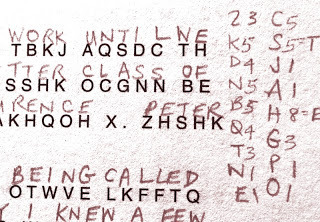 WORK UNTIL WE
TBKJ AQSDC TH
TTER CLASS OF
SSHK OCGNN BE
URENCE PETER
AKHQOH X. ZHSHK
BEING CALLED
OTWVE LKFFTQ
I KNEW A FEW
Z3
K5
D4
N5
B5
Q4
T3
N1
E1
C5
S5-T
J1
A1
H8=E
G3
P1
O1